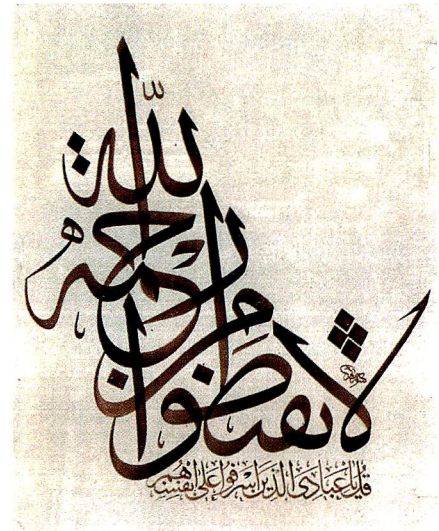 لا تقنطوا من رحمة الله
قل يا عبادى الذين اسرفوا على انفسهم